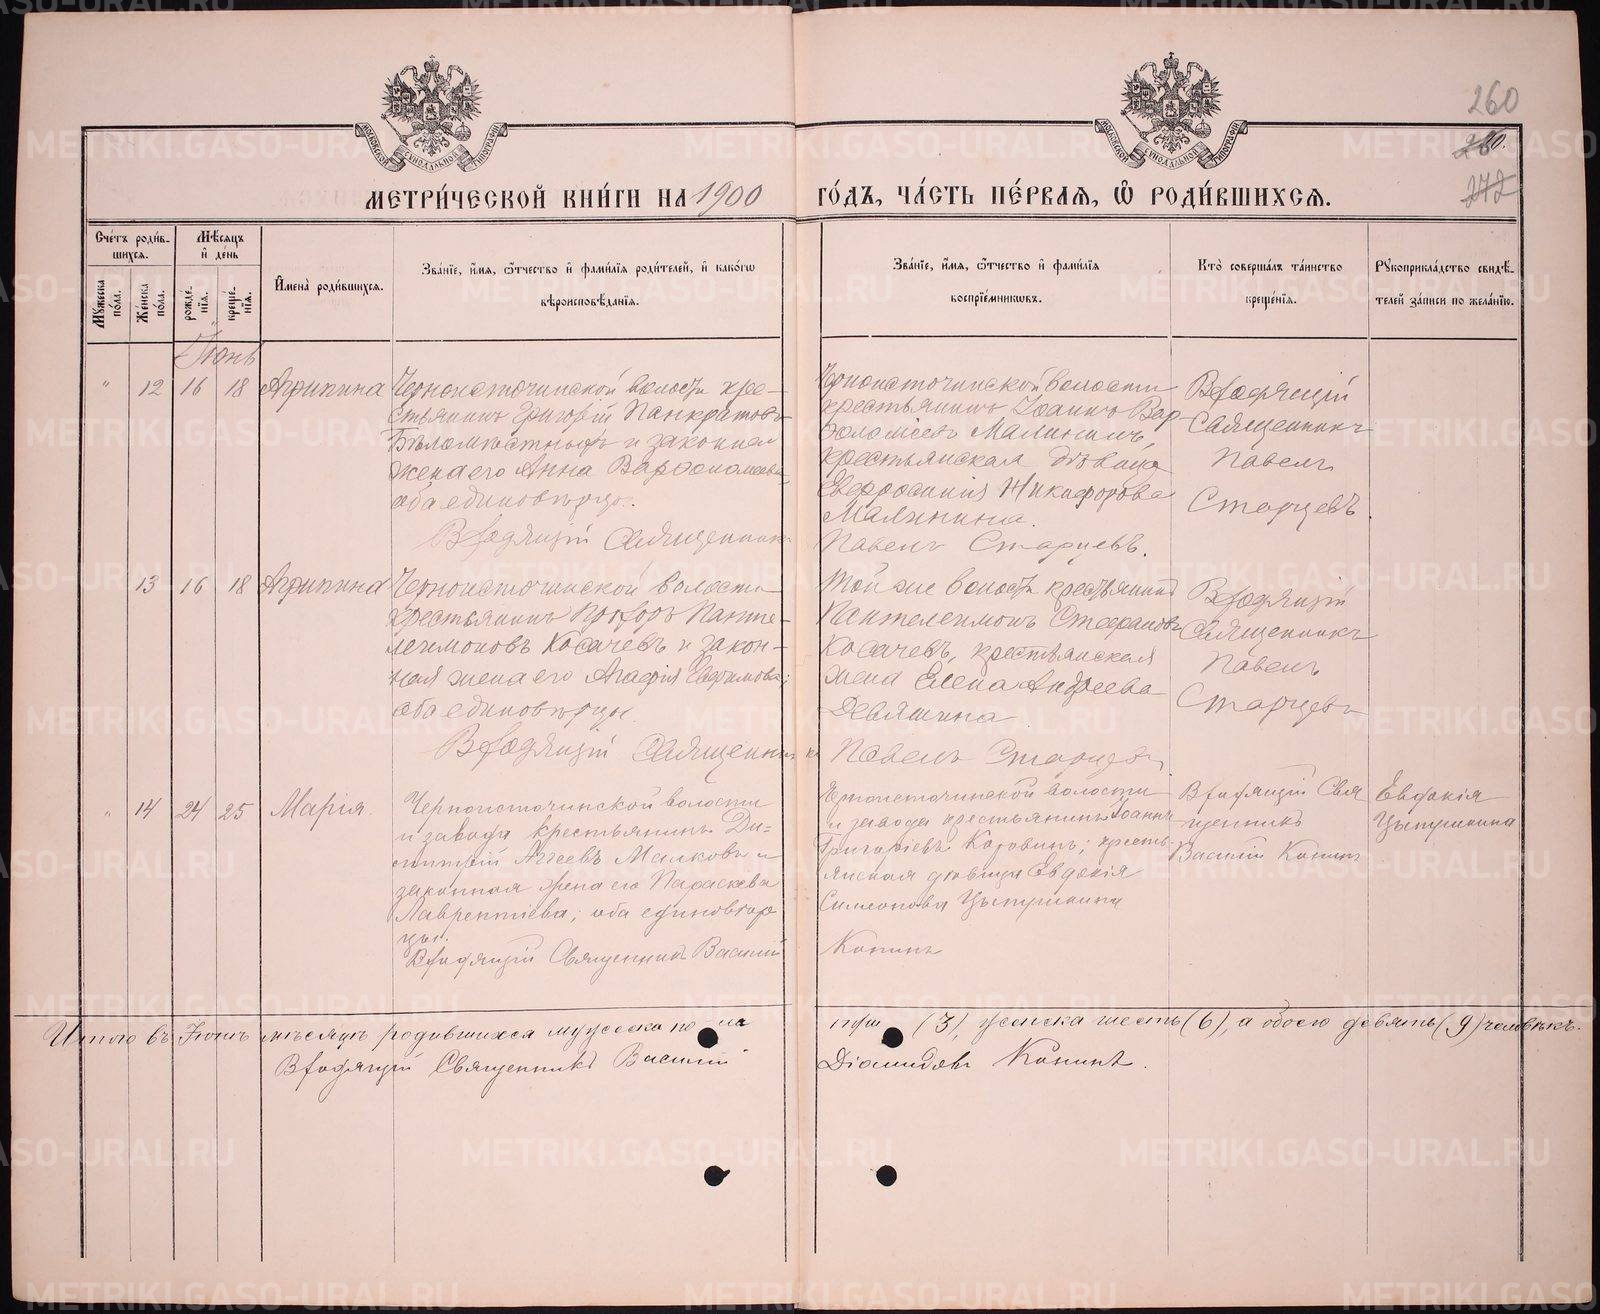 260
280.
272
МОСКОВСКОЙ СѴНОДАЛЬНОЙ ТИПОГРАФІИ
МОСКОВСКОЙ СѴНОДАЛЬНОЙ ТИПОГРАФІИ
МЕТРИ́ЧЕСКОЙ КНИ́ГИ НА 1900 ГО́ДЪ, ЧА́СТЬ ПЕ́РВАѦ, Ѡ҆ РОДИ́ВШИХСѦ.
Сче́тъ роди́в-
шихсѧ.
Мѣ́сѧцъ
и҆ де́нь
Мꙋ́жеска по́ла.
Же́нска по́ла.
рожде́-
нїѧ.
креще́-
нїѧ.
И҆мена̀ роди́вшихсѧ.
Зва́нїе, и҆́мѧ, ѻ҆́тчество и҆ фами́лїѧ роди́телей, и҆ како́гѡ
вѣроисповѣ́данїѧ.
Зва́нїе, и҆́мѧ, ѻ҆́тчество и҆ фами́лїѧ
воспрїе́мникѡвъ.
Кто̀ соверша́лъ та́инство
креще́нїѧ.
Рꙋкоприкла́дство свидѣ́-
телей за́писи по жела́нїю.
Іюнь
" 12 16 18 Агрипина
Черноисточинской волости кре-
стьянинъ Григорій Панкратовъ
Бѣломѣстныхъ и законная
жена его Анна Варфоломеева,
оба единовѣрцы.
Входящій Священникъ
Черноисточинской волости
крестьянинъ Іоаннъ Вар
фоломеевъ Малининъ,
крестьянская дѣвица
Евфросинія Никифорова
Малинина.
Павелъ Старцевъ.
Входящій
Священникъ
Павелъ
Старцевъ.
13 16 18 Агрипина
Черноисточинской волости
крестьянинъ Прохоръ Панте-
леимоновъ Косачевъ и закон-
ная жена его Агафія Евфимова;
оба единовѣрцы.
Входящій Священникъ
Той же волости крестьянинъ
Пантелеимонъ Стефановъ
Косачевъ, крестьянская
жена Елена Андреева
Девяшина.
Павелъ Старцевъ.
Входящій
Священникъ
Павелъ
Старцевъ
" 14 24 25 Марія.
Черноисточинской волости
и завода крестьянинъ Ди-
митрій Аггеевъ Малковъ и
законная жена его Параскева
Лаврентіева; оба единовѣр
цы.
Входящій Священникъ Василій
Черноисточинской волости
и завода крестьянинъ Іоаннъ
Григоріевъ Коровинъ; кресть-
янская дѣвица Евдокія
Симеонова Цытринина
Конинъ
Входящій Свя
щенникъ
Василій Конинъ
Евдокія
Цытринина
Итого въ Іюнѣ мѣсяцѣ родившихся мужеска по ла три (3), женска шесть (6), а обоего девять (9) человѣкъ.
Входящій Священникъ Василій Діомидовъ Конинъ.
METRIKI.GASO-URAL.RU